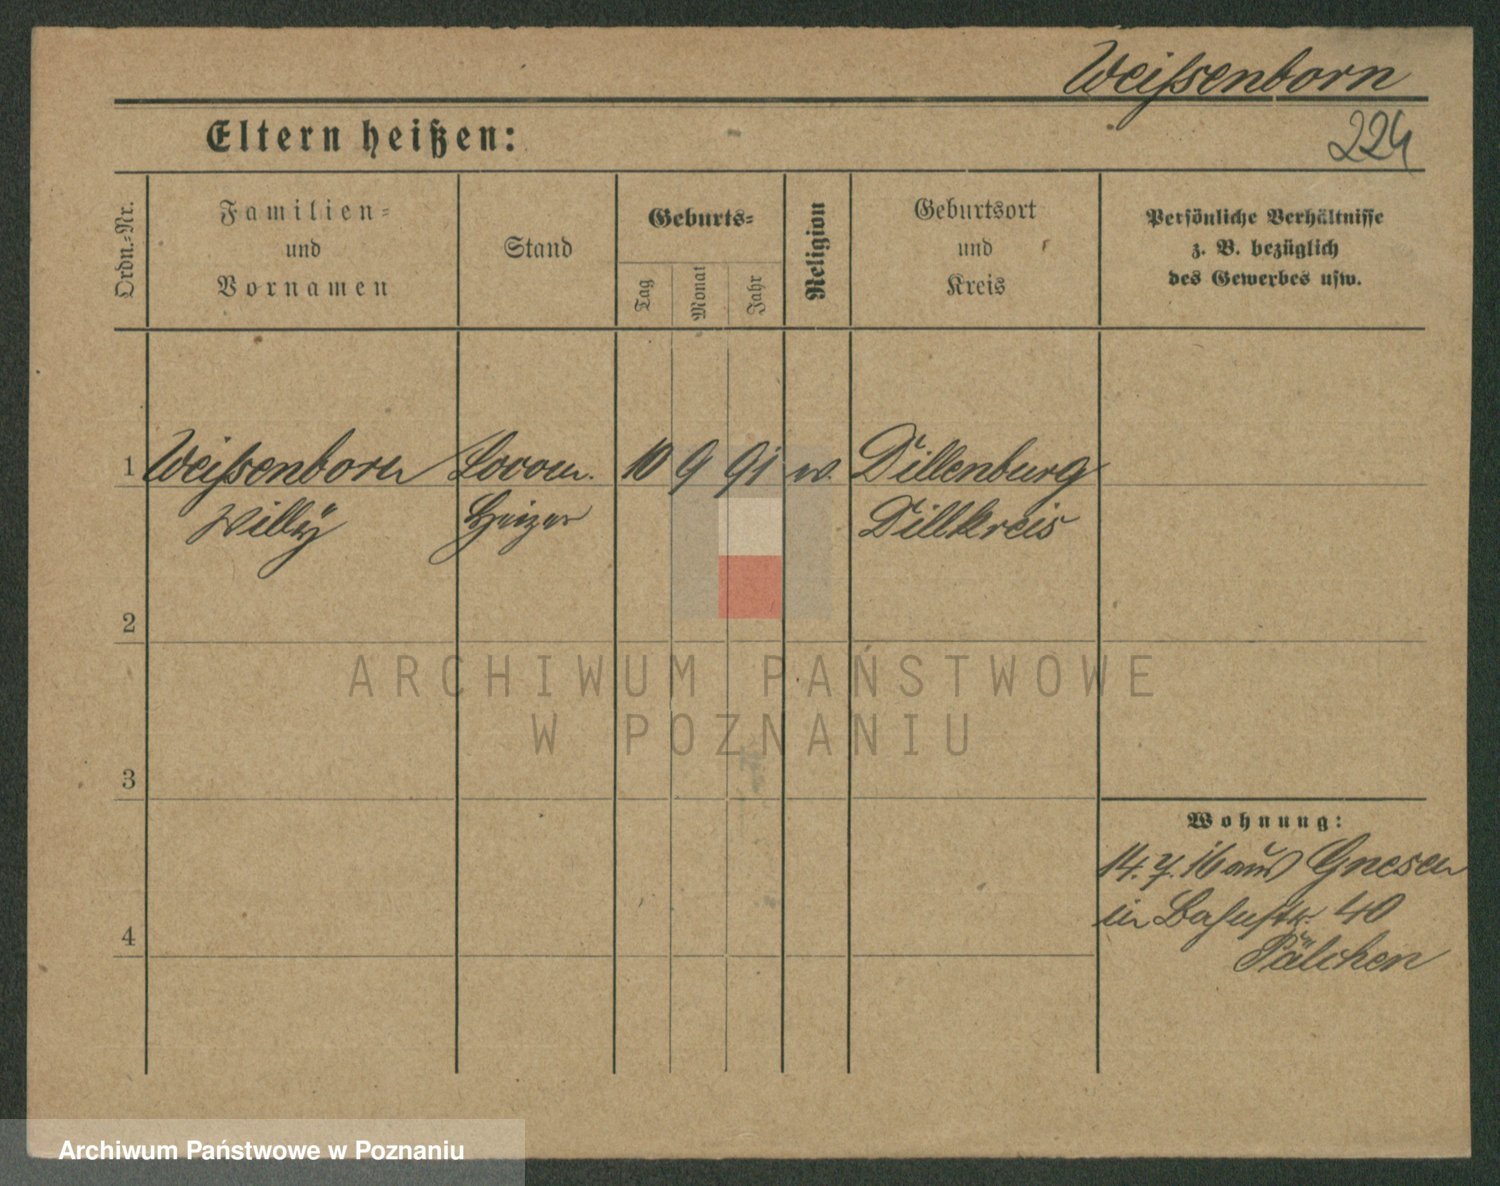 Weißenborn
224
Eltern heißen:
Ordn.-Nr.
Familien-
und
Vornamen
Stand
Geburts-
Tag
Monat
Jahr
Religion
Geburtsort
und
Kreis
Persönliche Verhältnisse
z. B. bezüglich
des Gewerbes usw.
1 Weißenborn Locom. 10 9 91 ev. Dillenburg
Willy Heizer Dillkreis
2
3
4
Wohnung:
14.7.16 aus Gnesen
in Bahnstr. 40
Pälchen
ARCHIWUM PAŃSTWOWE
W POZNANIU
Archiwum Państwowe w Poznaniu